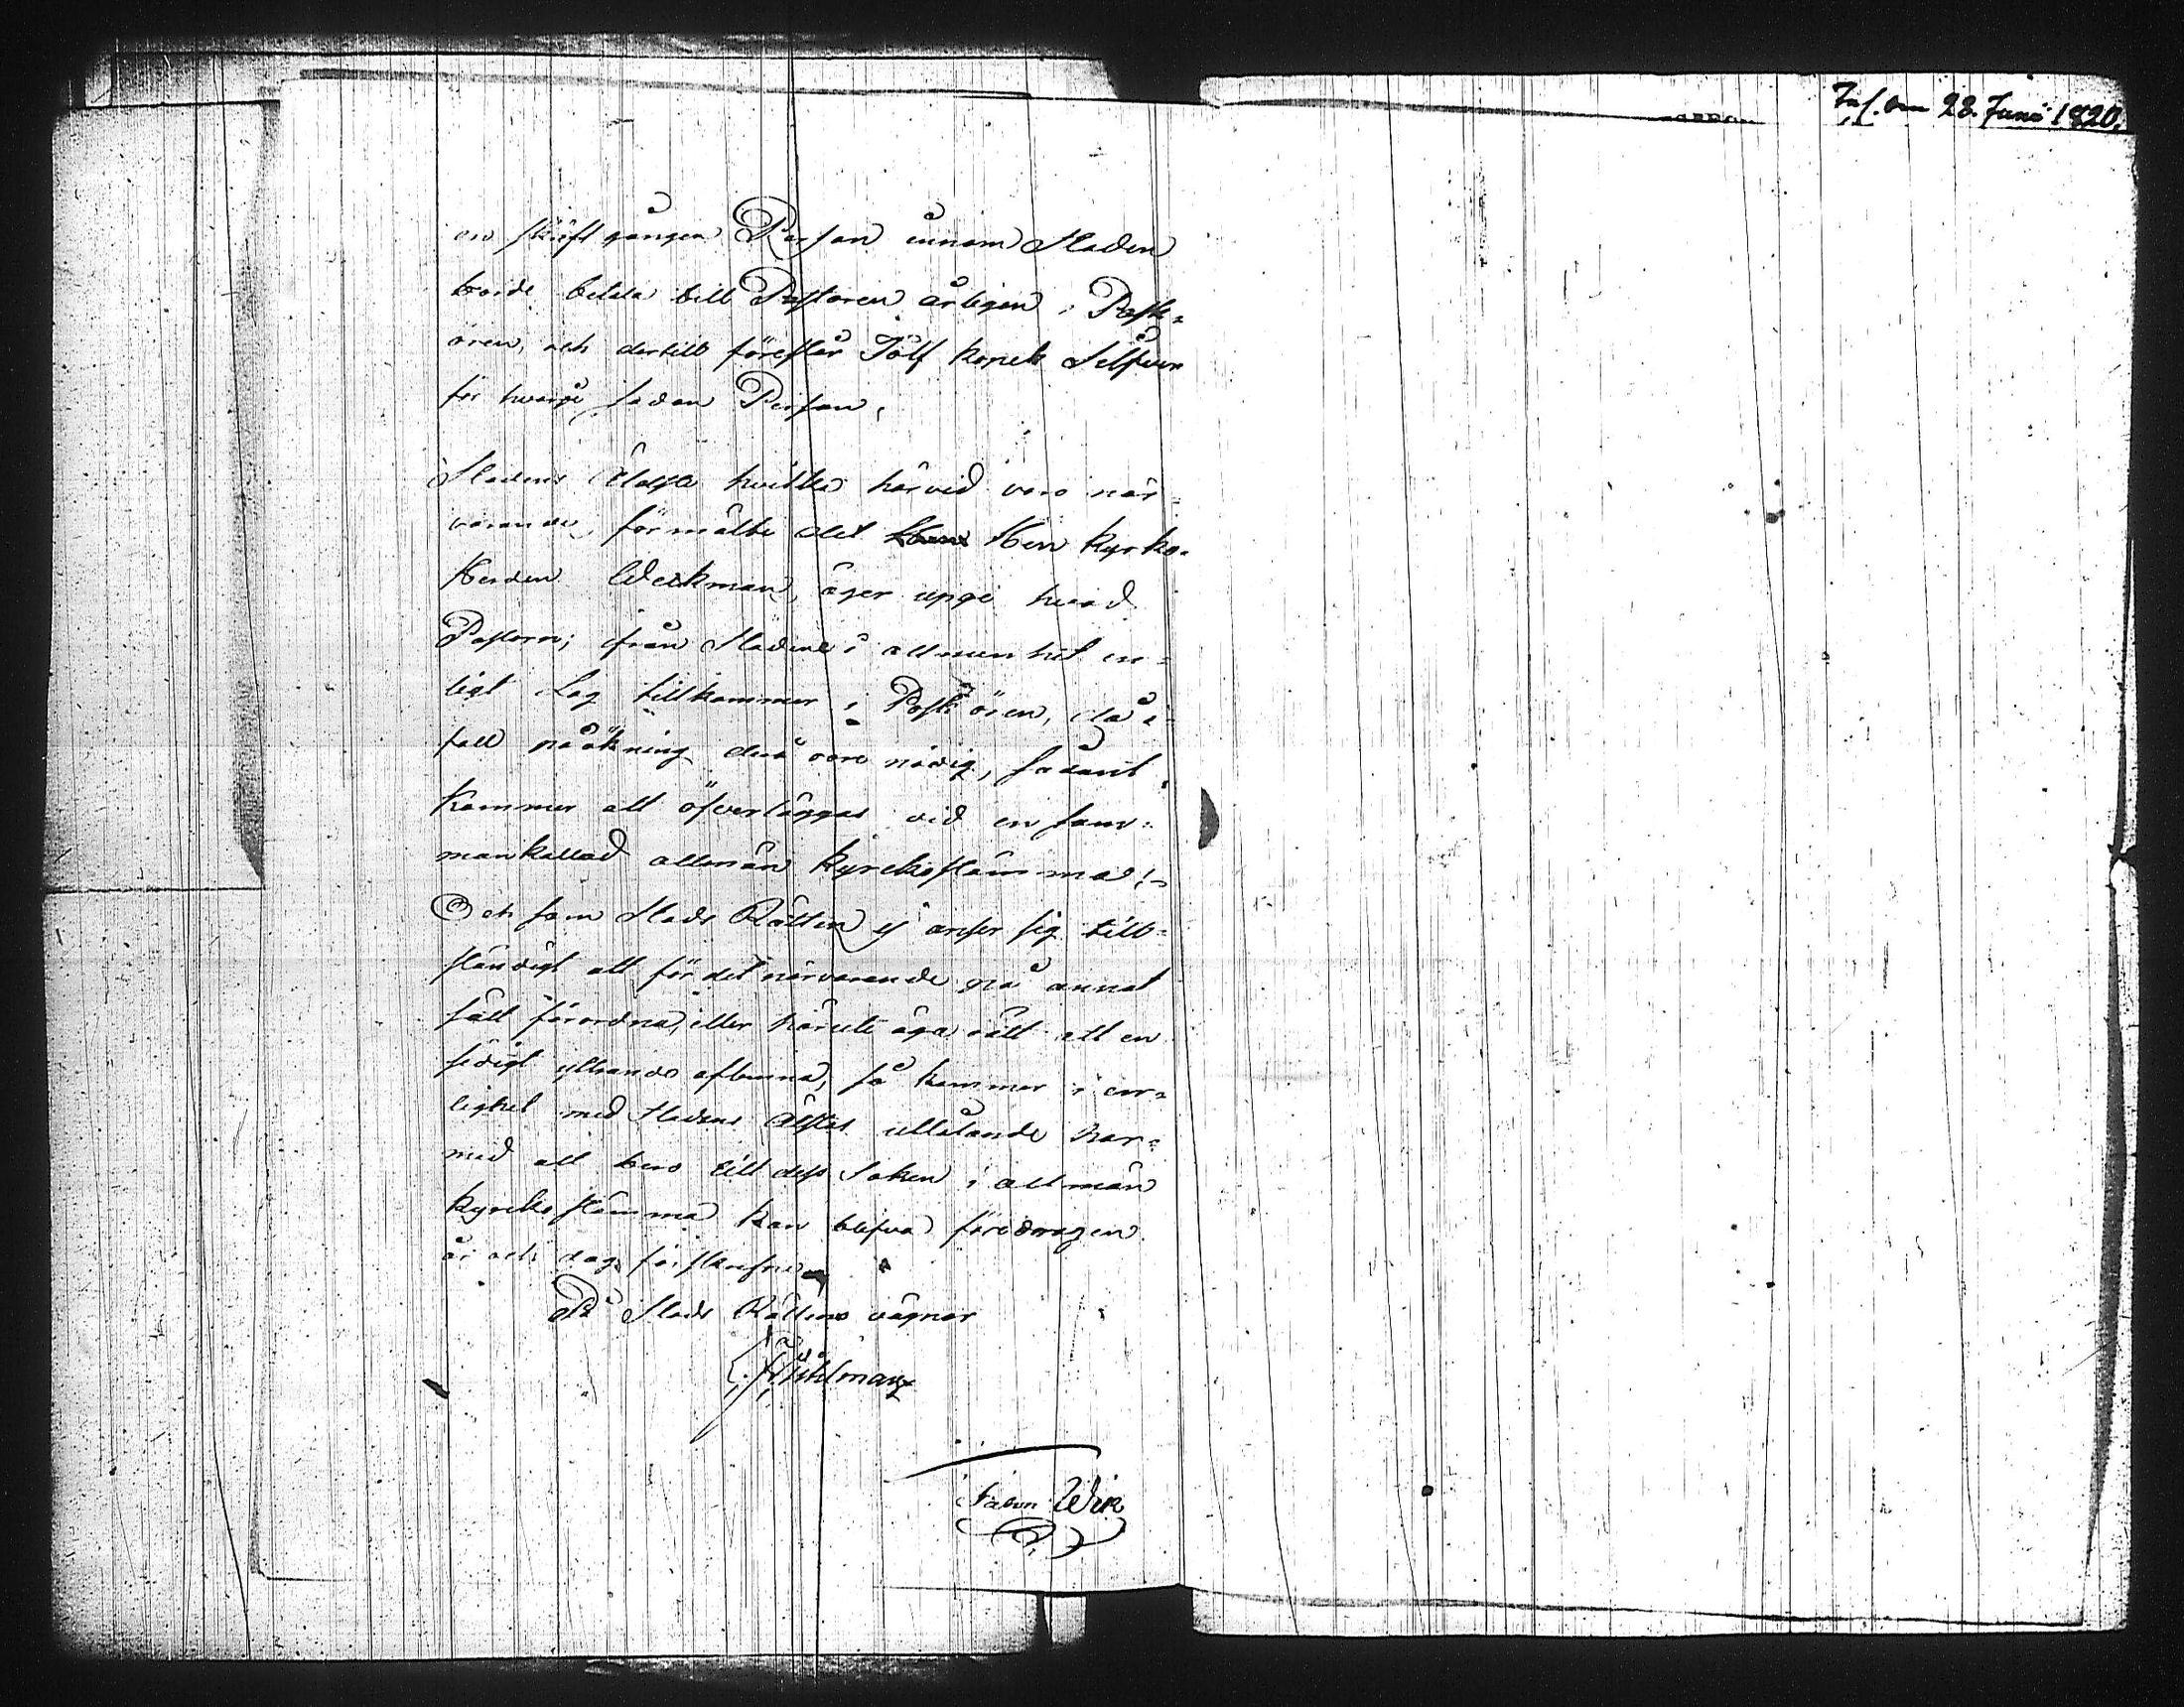 Ink. den 28. Junii 1820.
en skrift gången Person innom Staden
borde betala till Pastoren årligen, Påsk=
ören, och dertill föreslår Tolf kopek Silfver
för hvarje sådan Person,
Stadens Älste hvilka härvid voro när=
varande, förmälte det Herr Kyrko=
Herden Weckman, äger upge hvad
Pastorn, från Staden i allmenhet en=
ligt Lag tillkommer i Påsk ören, då i
fall påökning deri vore nödig, sådant
kommer att öfverläggas vid en sam=
mankallad allmän Kyrckostämma;
Och som Stads Rätten ej anser sig till=
ständigt att för det närvarande på annat
sätt förordna, eller häruti äga rätt att en
sidigt yttrande aflemna, så kommer i en=
lighet med Stadens Älstes utlåtande här=
med att bero till dess Saken i allmän
Kyrcko stämma kan blifva föredragen
år och dag, förskrefne
På Stads Rättens vägnar
Fabian Wik